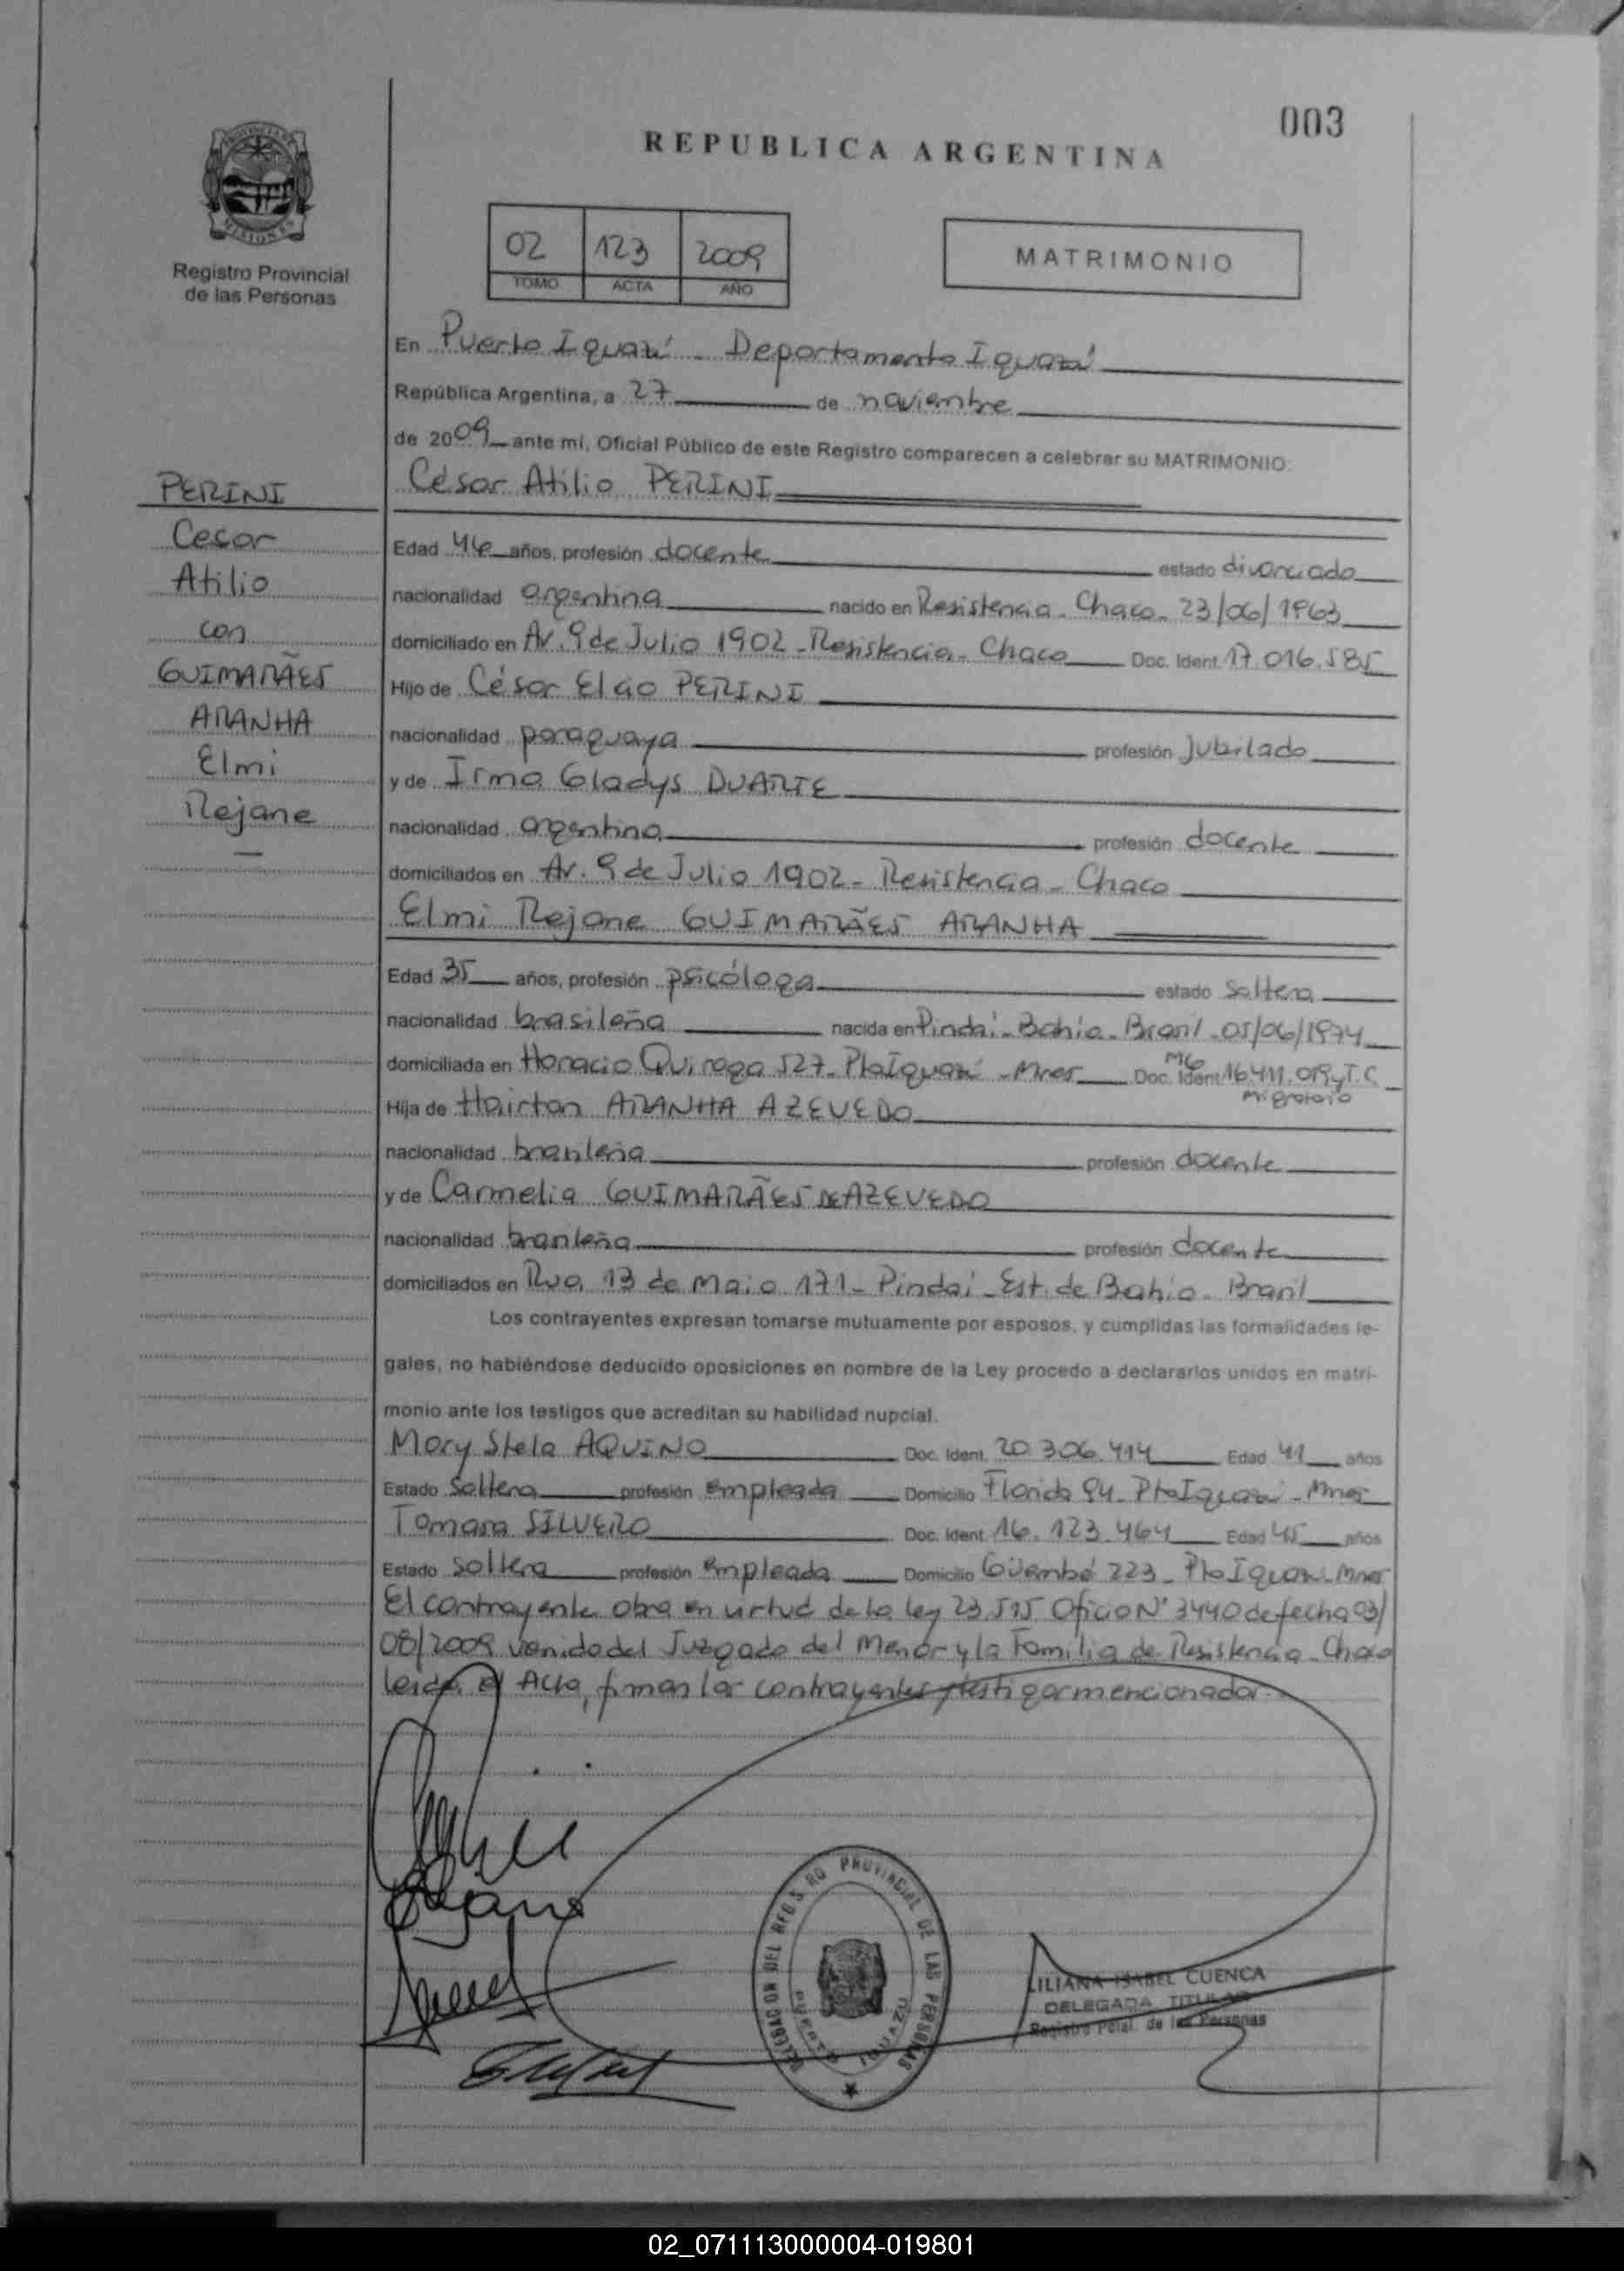 003
REPUBLICA ARGENTINA
PROVINCIA DE
MISIONES
Registro Provincial
de las Personas
02 123 2009
TOMO ACTA AÑO
MATRIMONIO
En Puerto Iguazú - Departamento Iguazú
República Argentina, a 27 de noviembre
de 2009 ante mí, Oficial Público de este Registro comparecen a celebrar su MATRIMONIO:
César Atilio PERINI
PERINI
Cesar
Atilio
con
GUIMARÃES
ARANHA
Elmi
Rejane
Edad 46 años, profesión docente estado divorciado
nacionalidad argentina nacido en Resistencia - Chaco - 23/06/1963
domiciliado en Av. 9 de Julio 1902 - Resistencia - Chaco Doc. Ident. 17.016.585
Hijo de César Elso PERINI
nacionalidad paraguaya profesión Jubilado
y de Irma Gladys DUARTE
nacionalidad argentina profesión docente
domiciliados en Av. 9 de Julio 1902 - Resistencia - Chaco
Elmi Rejane GUIMARÃES ARANHA
Edad 35 años, profesión psicóloga estado soltera
nacionalidad brasileña nacida en Pindaí - Bahía - Brasil - 05/06/1974
domiciliada en Horacio Quiroga 527 - Pto Iguazú - Mnes Doc. Ident. MG 16.411.019 y T.C.
Migratorio
Hija de Hairton ARANHA AZEVEDO
nacionalidad brasileña profesión docente
y de Carmelia GUIMARÃES DE AZEVEDO
nacionalidad brasileña profesión docente
domiciliados en Rua 13 de Maio 171 - Pindaí - Est. de Bahía - Brasil
Los contrayentes expresan tomarse mutuamente por esposos, y cumplidas las formalidades le-
gales, no habiéndose deducido oposiciones en nombre de la Ley procedo a declararlos unidos en matri-
monio ante los testigos que acreditan su habilidad nupcial.
Mary Stela AQUINO Doc. Ident. 20.306.414 Edad 41 años
Estado Soltera profesión empleada Domicilio Florida 94 - Pto Iguazú - Mnes
Tamara SILVERO Doc. Ident. 16.123.464 Edad 45 años
Estado soltera profesión empleada Domicilio Güembé 223 - Pto Iguazú - Mnes
El contrayente obra en virtud de la ley 23.515 Oficio N° 3440 de fecha 03/
08/2009 venido del Juzgado del Menor y la Familia de Resistencia - Chaco
Leida el Acta, firman los contrayentes y testigos mencionados.
DELEGACION DEL REGISTRO PROVINCIAL DE LAS PERSONAS
PUERTO IGUAZU
LILIANA ISABEL CUENCA
DELEGADA TITULAR
Registro Pcial. de las Personas
02_071113000004-019801